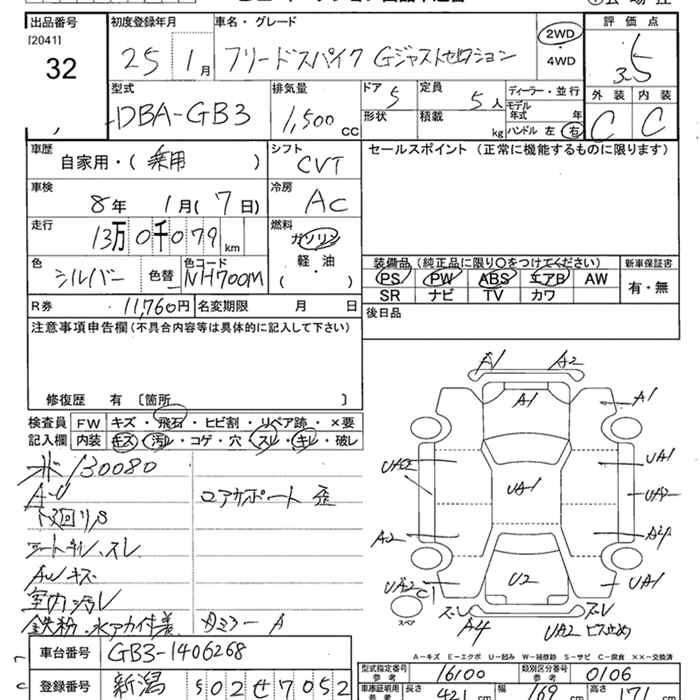 出品番号 初度登録年月 車名・グレード 2WD 評価点
[2041] 25 1月 フリードスパイク Gジャストセレクション ・ 3.5
32 4WD
型式 排気量 ドア 5 定員 5人 ディーラー・並行 外装 内装
DBA-GB3 1,500cc 形状 積載 kg モデル年式 年 C C
ハンドル 左 右
車歴 自家用・( 乗用 ) シフト CVT セールスポイント (正常に機能するものに限ります)
車検 8年 1月(7日) 冷房 AC
走行 13万0千079km 燃料 ガソリン
軽・油
( )
色 シルバー 色替 色コード NH700M 装備品 (純正品に限り○をつけてください) 新車保証書
PS PW ABS エアB AW 有・無
SR ナビ TV カワ
R券 11,760円 名変期限 月 日 後日品
注意事項申告欄(不具合内容等は具体的に記入して下さい)
修復歴 有 〔箇所 〕
検査員 FW キズ・飛石・ヒビ割・リペア跡・×要
記入欄 内装 キズ・汚レ・コゲ・穴・スレ・キレ・破レ
130080
ロアサポート 歪
下廻りS
シートキレ、スレ
AWキズ
室内汚レ
鉄粉、水アカ付着 Dミラー A
A1 A2
A1 A1
UA2 UA1 UA1
UA2
A2 A2
UA2 C1 U2 UA1
スペア スレ スレ
A4 UA2 ビス止め
A-キズ E-エクボ U-凹み W-補修跡 S-サビ C-腐食 ××-交換済
車台番号 GB3-1406268 型式指定番号 参考 16100 類別区分番号 参考 0106
登録番号 新潟 502 せ 7052 車庫証明用 参考 長さ 421cm 幅 169cm 高さ 171cm